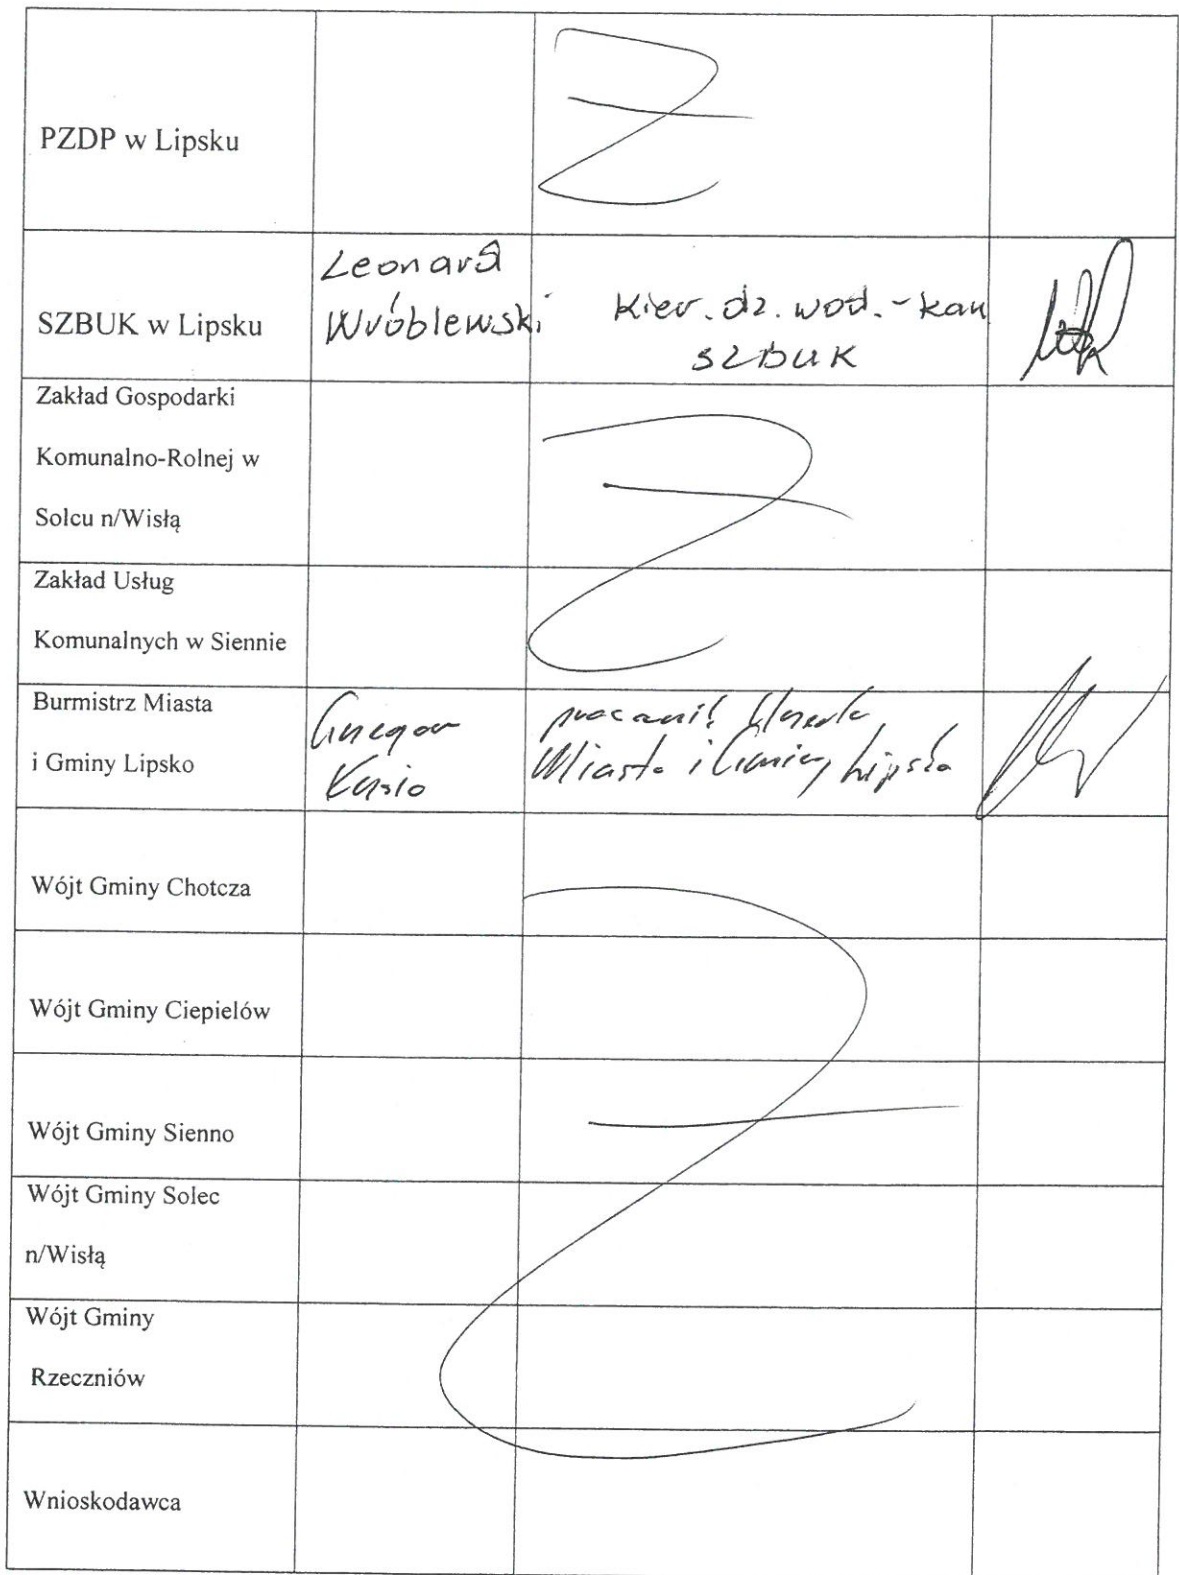 PZDP w Lipsku
SZBUK w Lipsku
Leonard
Wróblewski
Kier. dz. wod. - kan
SZBUK
Zakład Gospodarki
Komunalno-Rolnej w
Solcu n/Wisłą
Zakład Usług
Komunalnych w Siennie
Burmistrz Miasta
i Gminy Lipsko
Miasta i Gminy Lipsko
Wójt Gminy Chotcza
Wójt Gminy Ciepielów
Wójt Gminy Sienno
Wójt Gminy Solec
n/Wisłą
Wójt Gminy
Rzeczniów
Wnioskodawca